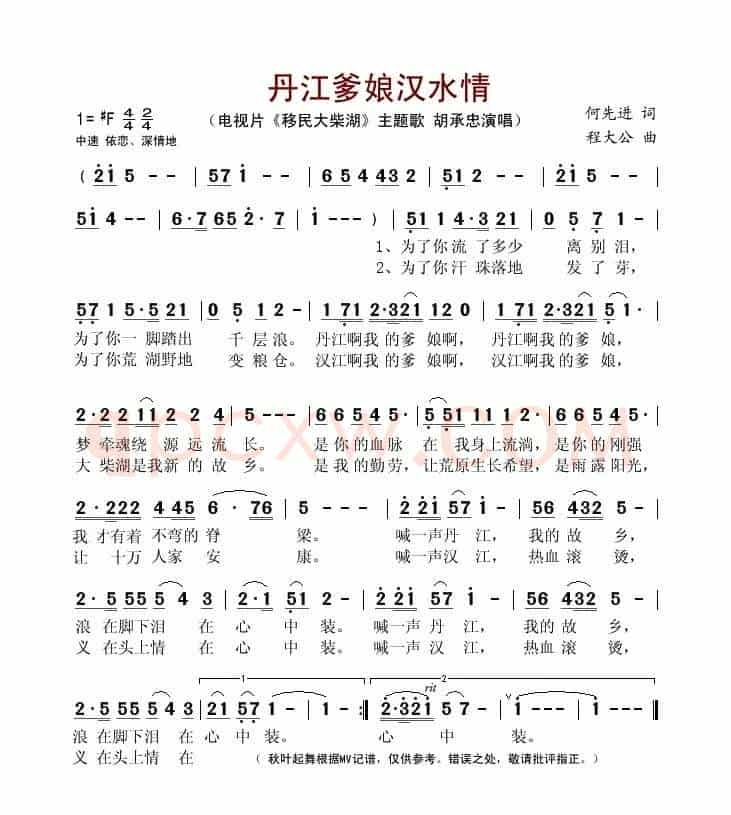 丹江爹娘汉水情
1=♯F 4/4 2/4 （电视片《移民大柴湖》主题歌 胡承忠演唱） 何先进 词
中速 依恋、深情地 程大公 曲
( 2 1 5 - - | 5 7 1 - - | 6 5 4 4 3 2 | 5 - - - | 2 1 5 - - |
5 1 4 - - | 6·7 6 5 2·7 | 1 - - - ) | 5 1 1 4·3 2 1 | 0 5 7 1 - |
1、为了你流 了多少 离 别 泪，
2、为了你汗 珠落地 发 了 芽，
5 7 1 5·5 2 1 | 0 5 1 2 - | 1 7 1 2·3 2 1 1 2 0 | 1·7 1 2·3 2 1 5 1· |
为了你一 脚踏出 千 层 浪。 丹江啊我 的爹 娘啊， 丹江啊我 的爹 娘，
为了你荒 湖野地 变 粮 仓。 汉江啊我 的爹 娘啊， 汉江啊我 的爹 娘，
2·2 2 1 1 2 2 4 | 5 - - - | 6 6 5 4 5· | 5 5 1 1 2 1 2 - | 6 6 5 4 5· |
梦 牵魂绕 源 远 流 长。 是你的血脉 在 我身上流淌， 是你的刚强
大 柴湖是我 新 的 故 乡。 是我的勤劳， 让荒原生长希望， 是雨露阳光，
2·2 2 2 4 4 5 6·7 6 | 5 - - - | 2·2 2 1 5 7 1 - | 5 6 4 3 2 5 - |
我 才有着 不弯的 脊 梁。 喊一声丹 江， 我的 故 乡，
让 十万 人家 安 康。 喊一声汉 江， 热血 滚 烫，
2·5 5 5 5 4 3 | 2·1 5 1 2 - | 2 2 2 1 5 7 1 - | 5 6 4 3 2 5 - |
浪 在脚下泪 在 心 中 装。 喊一声 丹 江， 我的 故 乡，
义 在头上情 在 心 中 装。 喊一声 汉 江， 热血 滚 烫，
1 2 rit
2·5 5 5 5 4 3 | 2 1 5 7 1 - | 1 - - :‖ 2·3 2 1 5 7 - | 1 - - - | 1 - - ‖
浪 在脚下泪 在 心 中 装。 心 中 装。
义 在头上情 在 （ 秋叶起舞根据MV记谱，仅供参考。错误之处，敬请批评指正。）
qpcxw.com